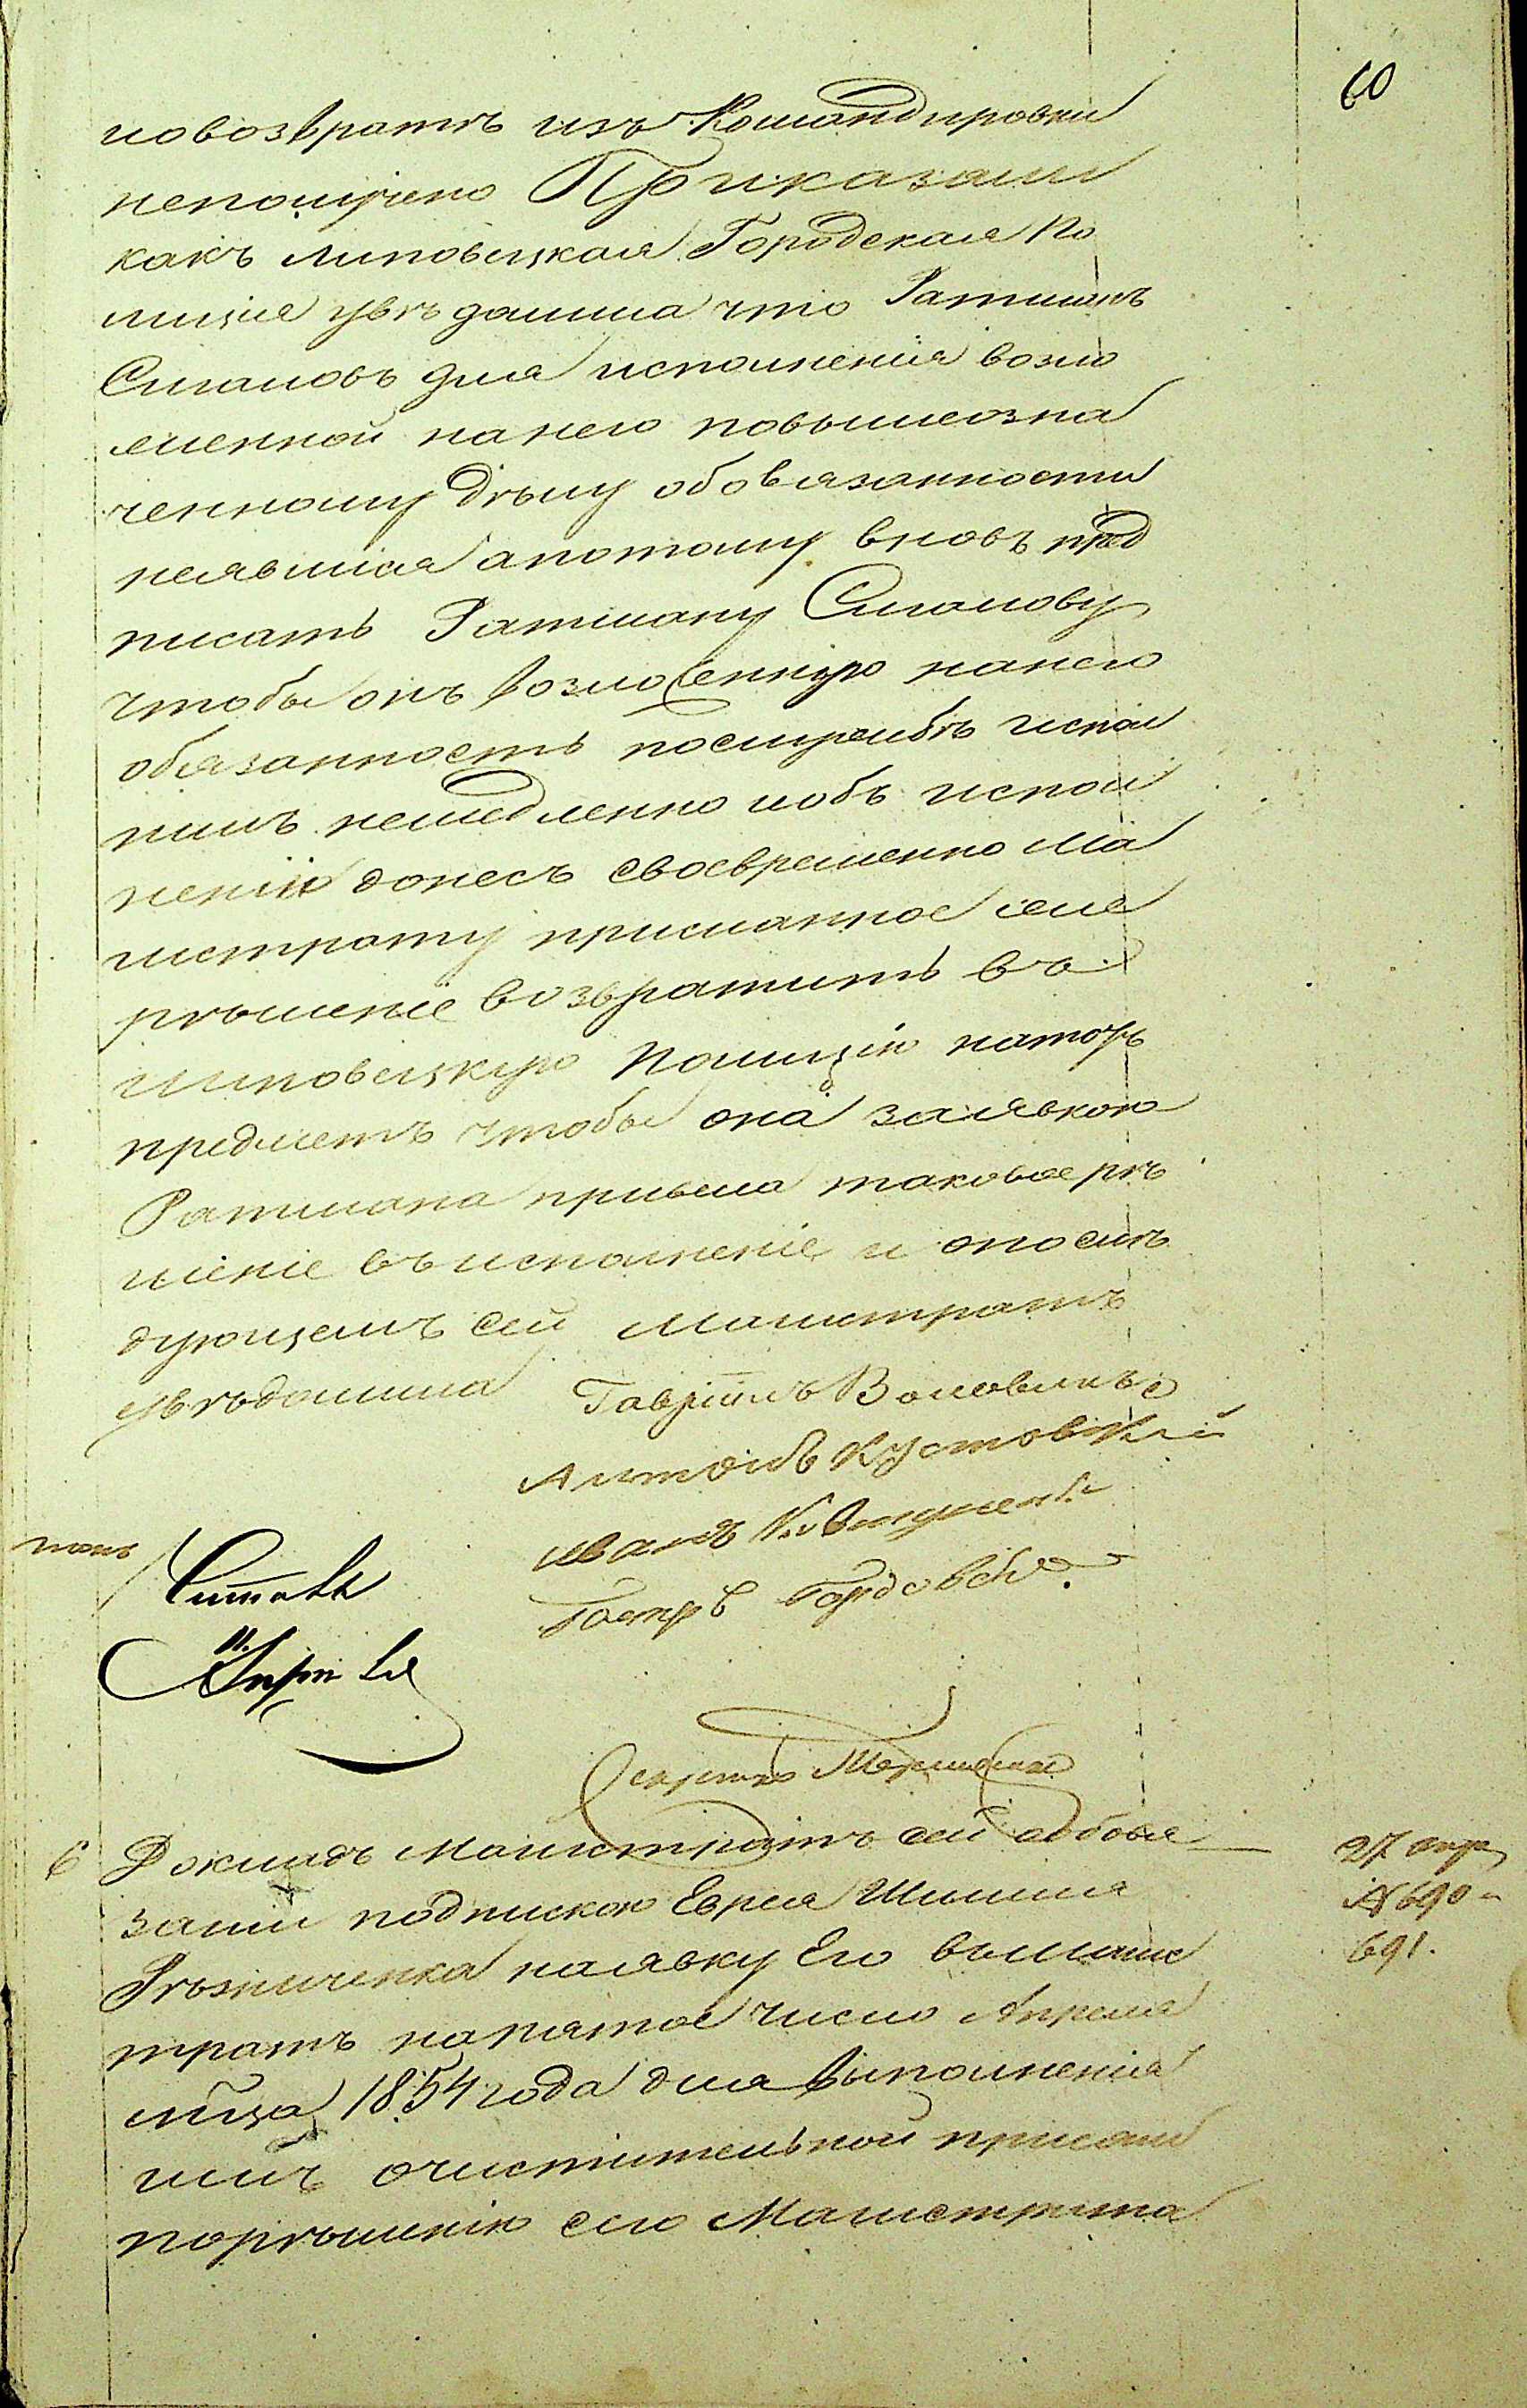 60
повозвратѣ изъ Командировки
неполучено Приказали
какъ Липовецкая Городская По
лиція увѣдомила что Ратманъ
Сигаловъ для исполненія возло
женной нанего повышеозна
ченному дѣлу обовязанности
неявился апотому вновь пред
писать Ратману Сигалову
чтобы онъ возложенную нанего
обязанность посиле испол
нилъ немедленно иобъ испол
неніи донесъ своевременно Ма
гистрату присланное же
рѣшеніе возвратить въ
Липовецкую Полицію натотъ
предметъ чтобы она заявкою
Ратмана привела таковое рѣ
шеніе въ исполненіе и опослѣ
дующемъ сей Магистратъ
увѣдомила
Гавріилъ Воловикъ
Антонъ Кустовскій
Иванъ
Петръ
Секретарь
6 Докладъ Магистратъ сей обовя
залъ подпискою Еврея Шлиму
Рѣзниченка наявку Его вМагис
тратъ напятое число Апреля
мца 1854 года для выполненія
имъ очистительной присяги
порѣшенію сего Магистрата
27 апр
№ 690
691.